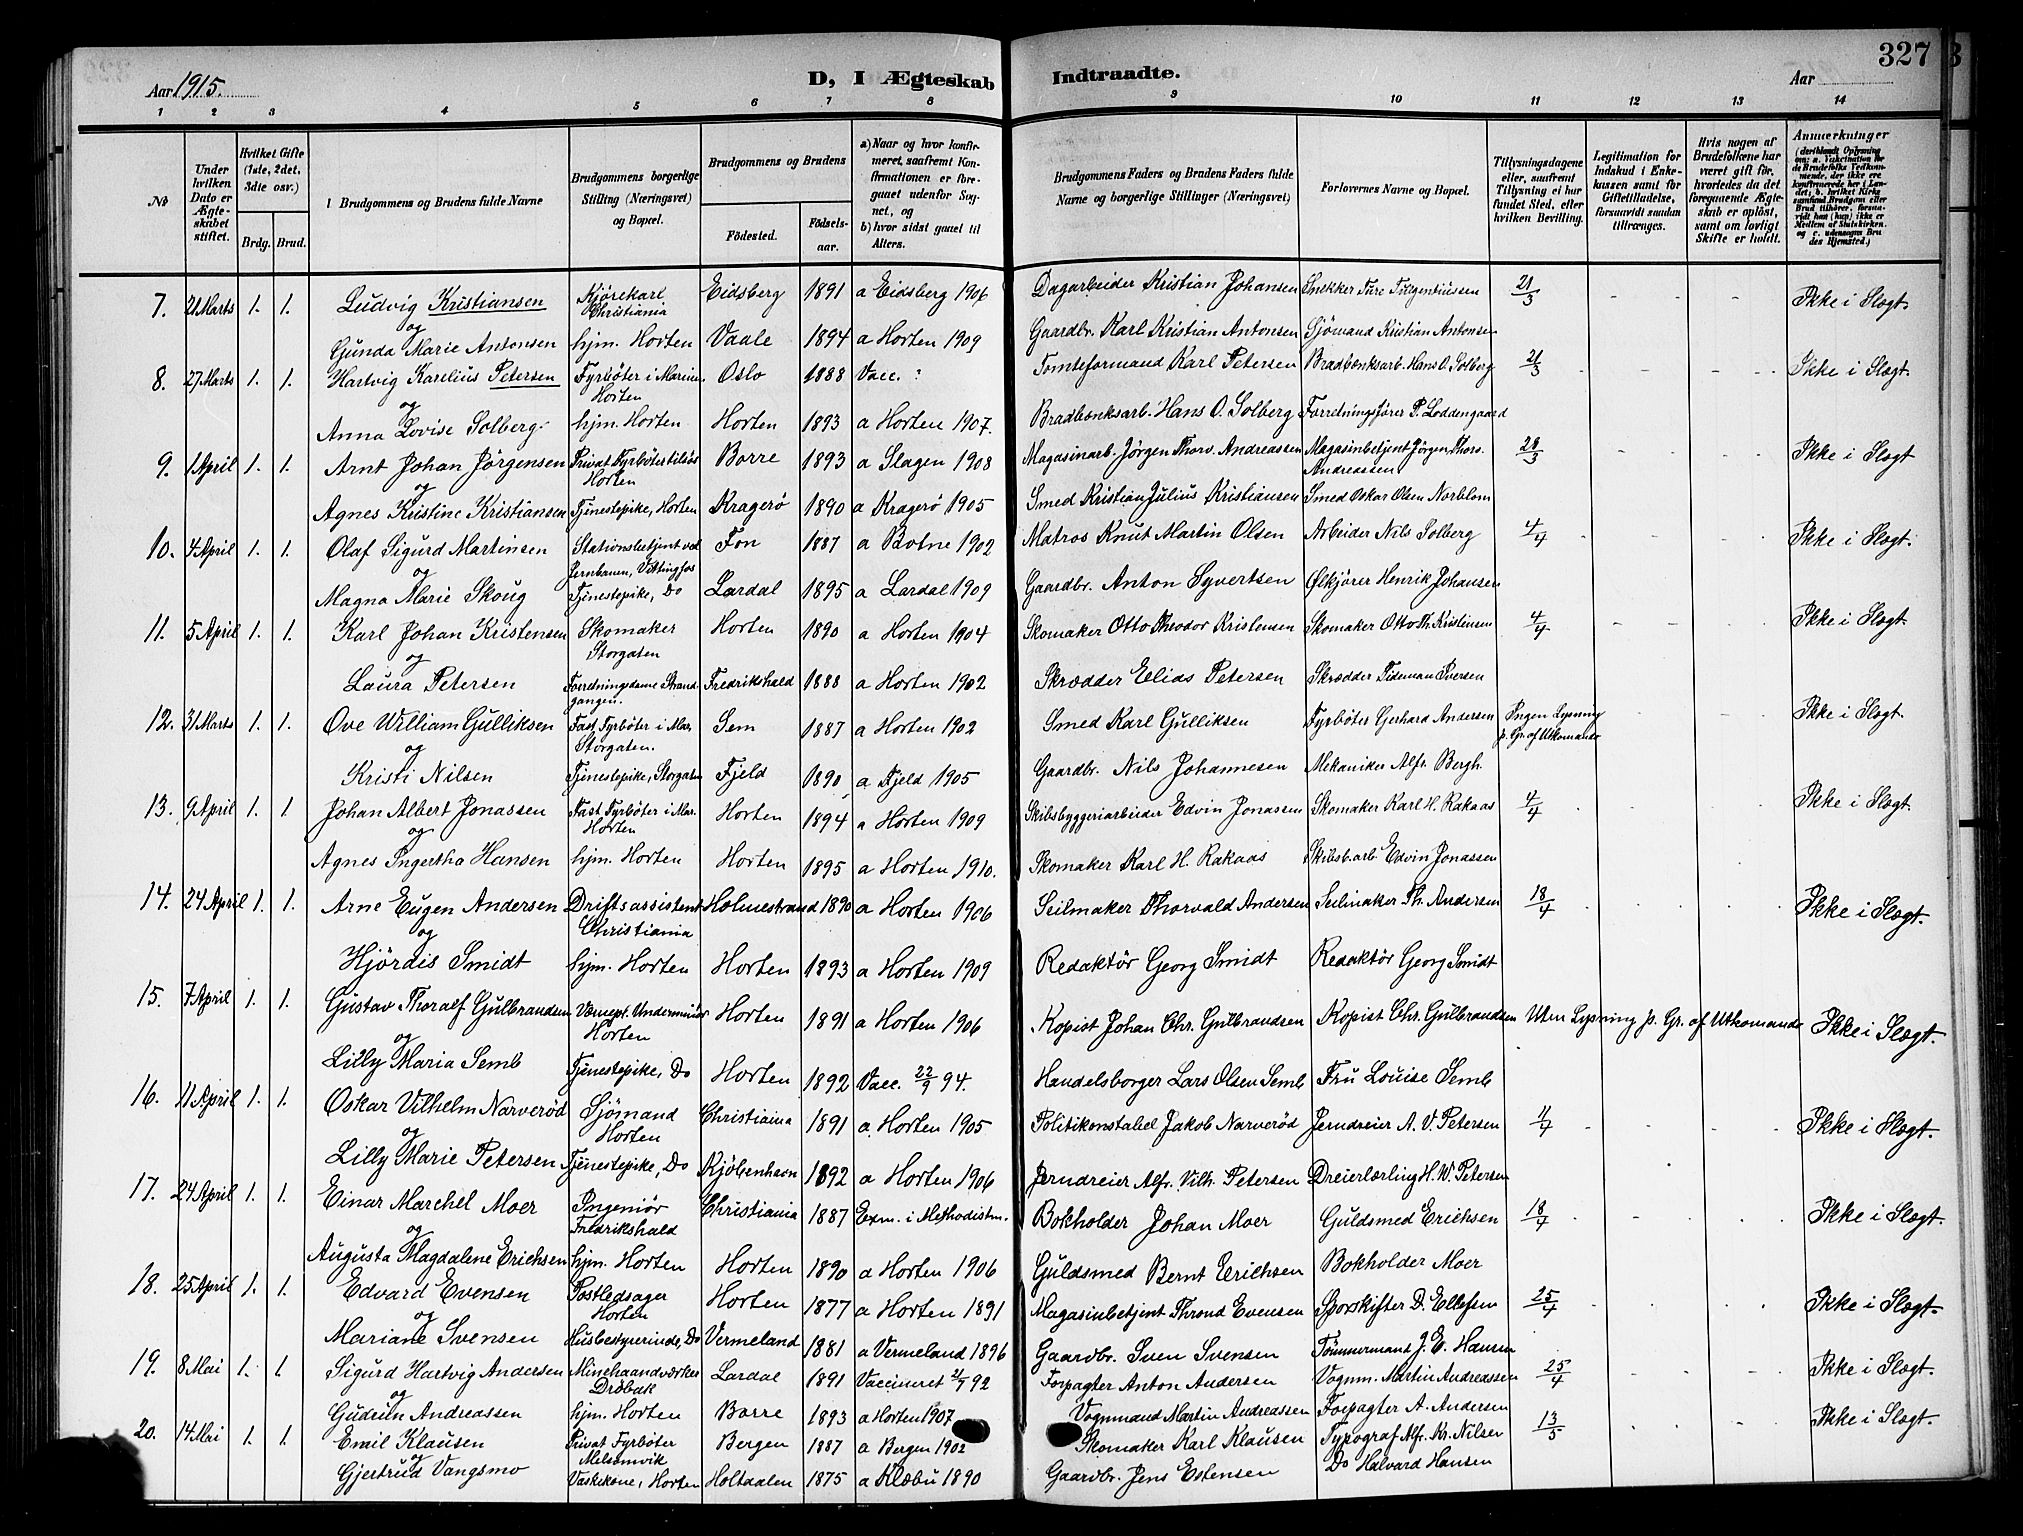 327
Aar 1915.
D, I Ægteskab Indtraadte.
Aar
1 2 3 4 5 6 7 8 9 10 11 12 13 14
No
Under hvilken Dato er Ægteskabet stiftet.
Hvilket Gifte (1ste, 2det, 3die osv.)
Brdg. Brud.
Brudgommens og Brudens fulde Navne
Brudgommens borgerlige Stilling (Næringsvei) og Bopæl.
Brudgommens og Brudens
Fødested. Fødselsaar.
a) Naar og hvor konfirmeret, saafremt Konfirmationen er foregaaet udenfor Sognet, og
b) hvor sidst gaaet til Alters.
Brudgommens Faders og Brudens Faders fulde Navne og borgerlige Stillinger (Næringsvei)
Forlovernes Navne og Bopæl.
Tillysningsdagene eller, saafremt Tillysning ei har fundet Sted, efter hvilken Bevilling.
Legitimation for Indskud i Enkekassen samt for Giftetilladelse, forsaavidt saadan tiltrænges.
Hvis nogen af Brudefolkene har været gift før, hvorledes da det foregaaende Ægteskab er opløst, samt om lovligt Skifte er holdt.
Anmerkninger
7. 21 Marts 1. 1. Ludvig Kristiansen Kjørekarl Christiania Eidsberg 1891 a Eidsberg 1906 Dagarbeider Kristian Johansen Snekker Ture Fulgentiussen 21/3 Ikke i Slægt.
og
Gunda Marie Antonsen hjm. Horten Vaale 1894 a Horten 1909 Gaardbr. Karl Kristian Antonsen Sjømand Kristian Antonsen
8. 27 Marts 1. 1. Hartvig Karelius Petersen Fyrbøter i Marinen Horten Oslo 1888 Vacc. ? Tomteformand Karl Petersen Bradbænksarb. Hans O. Solberg 21/3 Ikke i Slægt.
og
Anna Lovise Solberg hjm. Horten Horten 1893 a Horten 1907. Bradbænksarb. Hans O. Solberg Forretningsfører P. Loddengaard
9. 1 April 1. 1. Arnt Johan Jörgensen Privat Fyrbøter tilsjøs Horten Borre 1893 a Slagen 1908 Magasinarb. Jörgen Thorv. Andreassen Magasinbetjent Jörgen Thorv. Andreassen 28/3 Ikke i Slægt
og
Agnes Kristine Kristiansen Tjenestepike, Horten Kragerö 1890 a Kragerö 1905 Smed Kristian Julius Kristiansen Smed Oskar Olsen Norblom
10. 4 April 1. 1. Olaf Sigurd Martinsen Stationsbetjent ved Jernbanen, Vittingfos Fon 1887 a Botne 1902 Matros Knut Martin Olsen Arbeider Nils Solberg 4/4 Ikke i Slægt.
og
Magna Marie Skoug Tjenestepike, Do Lardal 1895 a Lardal 1909 Gaardbr. Anton Syvertsen Ølkjører Henrik Johansen
11. 5 April 1. 1. Karl Johan Kristensen Skomaker Storgaten Horten 1890 a Horten 1904 Skomaker Otto Theodor Kristensen Skomaker Otto Th. Kristensen 4/4 Ikke i Slægt.
og
Laura Petersen Forretningsdame Strandgangen. Fredrikshald 1888 a Horten 1902 Skrædder Elias Petersen Skrædder Tideman Iversen
12. 31 Marts 1. 1. Ove William Gulliksen Fast Fyrbøter i Mar. Storgaten. Sem 1887 a Horten 1902 Smed Karl Gulliksen Fyrbøter Gerhard Andersen Ingen Lysning p. Gr. af Utkomando Ikke i Slægt.
og
Kristi Nilsen Tjenestepike, Storgaten Fjeld 1890 a Fjeld 1905 Gaardbr. Nils Johannesen Mekaniker Alfr. Bergh.
13. 9 April 1. 1 Johan Albert Jonassen Fast Fyrbøter i Mar. Horten Horten 1894 a Horten 1909 Skibsbyggeriarbeider Edvin Jonassen Skomaker Karl H. Rakaas 4/4 Ikke i Slægt.
og
Agnes Ingertha Hansen hjm. Horten Horten 1895 a Horten 1910. Skomaker Karl H. Rakaas Skibsb.arb. Edvin Jonassen
14. 24 April 1. 1. Arne Eugen Andersen Driftsassistent Christiania Holmestrand 1890 a Horten 1906 Seilmaker Thorvald Andersen Seilmaker Th. Andersen 18/4 Ikke i Slægt.
og
Hjördis Smidt hjm. Horten Horten 1893 a Horten 1909 Redaktör Georg Smidt Redaktör Georg Smidt
15. 7 April 1. 1. Gustav Thoralf Gulbrandsen Værnepl. Underminør Horten Horten 1891 a Horten 1906 Kopist Johan Chr. Gulbrandsen Kopist Chr. Gulbrandsen Uten Lysning p. Gr. af Utkomando Ikke i Slægt.
og
Lilly Maria Semb Tjenestepike, Do Horten 1892 Vacc. 22/9 94. Handelsborger Lars Olsen Semb Fru Louise Semb
16. 11 April 1. 1. Oskar Vilhelm Narveröd Sjömand Horten Christiania 1891 a. Horten 1905 Politikonstabel Jakob Narveröd Jerndreier A. V. Petersen 11/4 Ikke i Slægt.
og
Lilly Marie Petersen Tjenestepike, Do Kjöbenhavn 1892 a Horten 1906 Jerndreier Alfr. Vilh. Petersen Dreierlærling H. W. Petersen
17. 24 April 1. 1. Einar Marchel Moer Ingeniör Fredrikshald Christiania 1887 Exm. i Methodistm. Bokholder Johan Moer Guldsmed Erichsen 18/4 Ikke i Slægt.
og
Augusta Magdalene Erichsen hjm. Horten Horten 1890 a Horten 1906 Guldsmed Bernt Erichsen Bokholder Moer
18. 25 April 1. 1. Edvard Evensen Postledsager Horten Horten 1877 a Horten 1891 Magasinbetjent Thrond Evensen Sporskifter D. Ellefsen 25/4 Ikke i Slægt.
og
Mariane Svensen Husbestyrerinde, Do Vermeland 1881 a Vermeland 1896 Gaardbr. Sven Svensen Tømmermand J. E. Hansen
19. 8 Mai 1. 1. Sigurd Hartvig Andersen Minehaandverker Drøbak Lardal 1891 Vaccineret 2/7 92 Forpagter Anton Andersen Vognm. Martin Andreassen 25/4 Ikke i Slægt.
og
Gudrun Andreassen hjm. Horten Borre 1893 a Horten 1907 Vognmand Martin Andreassen Forpagter A. Andersen
20. 14 Mai 1. 1. Emil Klausen Privat Fyrbøter Melsomvik Bergen 1887 a Bergen 1902 Skomaker Karl Klausen Typograf Alfr. Kr. Nilsen 13/5 Ikke i Slægt.
og
Gjertrud Vangsmo Vaskekone, Horten Holtdalen 1875 a Klæbu 1890 Gaardbr. Jens Estensen Do Halvard Hansen